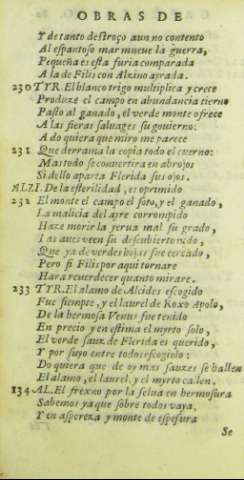 OBRAS DE
Y de tanto destroço aun no contento
Al espantoso mar mueue la guerra,
Pequeña es esta furia comparada
A la de Filis con Alzino ayrada.
230 TYR. El blanco trigo multiplica y crece
Produze el campo en abundancia tierno
Pasto al ganado, el verde monte ofrece
A las fieras saluages su gouierno:
A do quiera que miro me parece
231 Que derrama la copia todo el cuerno:
Mas todo se conuertira en abrojos
Si dello aparta Flerida sus ojos.
ALZI. De la esterilidad, es oprimido
232 El monte el campo el soto, y el ganado,
La malicia del ayre corrompido
Haze morir la yerua mal su grado,
Las aues veen su descubierto nido,
Que ya de verdes hojas fue cercado,
Pero si Filis por aqui tornare
Hara reuerdecer quanto mirare.
233 TYR. El alamo de Alcides escogido
Fue siempre, y el laurel de Roxo Apolo,
De la hermosa Venus fue tenido
En precio y en estima el myrto solo,
El verde sauz de Flerida es querido,
Y por suyo entre todos escogiolo:
Do quiera que de oy mas sauzes se hallen
El alamo, el laurel, y el myrto callen.
134 AL. El frexno por la selua en hermosura
Sabemos ya que sobre todos vaya.
Y en aspereza y monte de espesura
Se